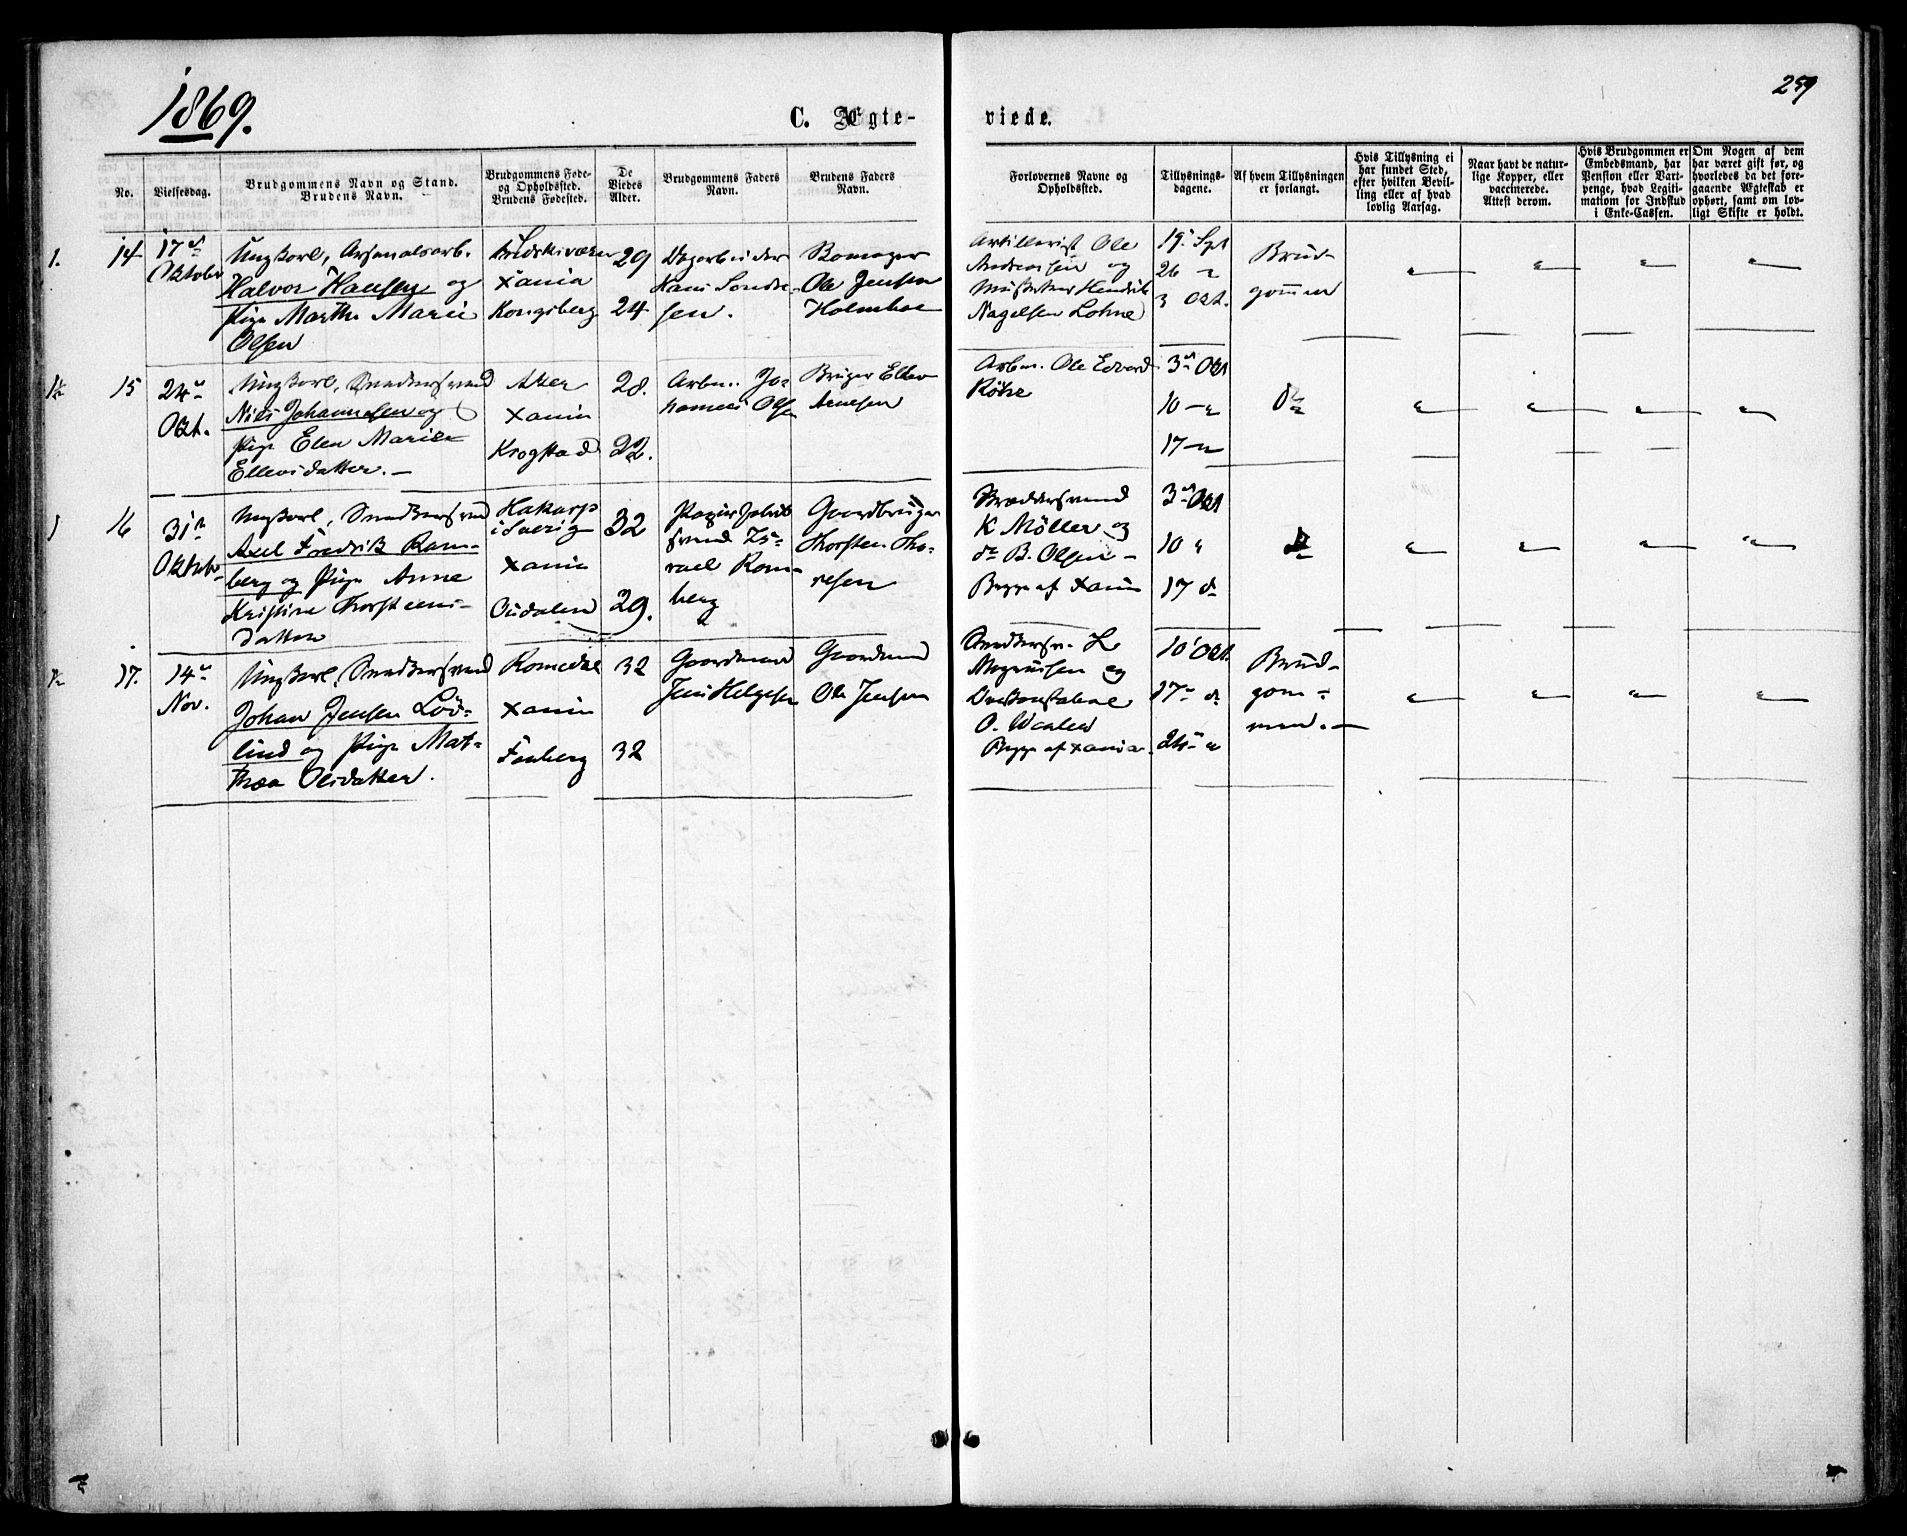 1869.
259
C. Ægte-
viede.
No.
Vielsesdag.
Brudgommens Navn og Stand.
Brudens Navn.
Brudgommens Føde-
og Opholdssted.
Brudens Fødested.
De
Viedes
Alder.
Brudgommens Faders
Navn.
Brudens Faders
Navn.
Forlovernes Navne og
Opholdssted.
Tillysnings-
dagene.
Af hvem Tillysningen
er forlangt.
Hvis Tillysning ei
har fundet Sted,
efter hvilken Bevil-
ling eller af hvad
lovlig Aarsag.
Naar havt de natur-
lige Kopper, eller
vaccinerede.
Attest derom.
Hvis Brudgommen er
Embedsmand, har
Pension eller Vart-
penge, hvad Legiti-
mation for Indskud
i Enke-Cassen.
Om Nogen af dem
har været gift før, og
hvorledes da det fore-
gaaende Ægteskab er
ophørt, samt om lov-
ligt Skifte er holdt.
1. 14 17de
Oktober
Ungkarl, Arsenalsarb.
Halvor Hansen og
Pige Marthe Marie
Olsen
Xania
Kongsberg
29
24
Dagarbeider
Hans
sen.
Ole Jensen
Holmboe
Artillerist Ole
Andreassen og
Hendrik
Nagelsen Lohne
19' Spt
26
3 Okt.
Brud-
gommen
15
24de
Okt.
Ungkarl, Snedkersvend
Niels Johannesen og
Pige Elen Marie
Ellevsdatter. –
Aker
Xania
Krogstad
28.
22.
Arbm. Jo-
hannes Olsen
Bruger Ellev
Arnesen
Arbm. Ole Edvard
3de Okt
10
17
Do
16
31te
Oktober
Ungkarl, Snedkersvend
Axel Fredrik Ram-
berg og Pige Anne
Kristine Thorsteens-
datter
Hakarp
i Sverig
Xania
Oudalen
32
29.
Papirfabrik
svend Is-
rael Ram-
berg
Gaardbruger
Thorsten Tho-
resen
K Møller og
do B. Olsen –
Begge af Xania
3de Okt
10
17 do
do
17.
14de
Nov.
Ungkarl, Snedkersvend
Johan Jensen Löv-
lund og Pige Mat-
thea Olsdatter.
Romedal
Xania
Faaberg
32
32
Gaardmand
Jens Helgesen
Gaardmand
Ole Jensen
Snedkersv. L.
Magnussen og
O.
Begge af Xania
10' Okt.
17 do
24
Brud-
gom-
men. –